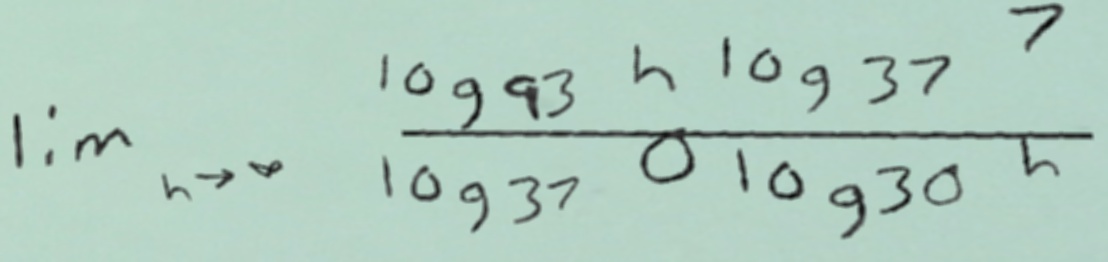 lim h→∞ log 93 h log 37 7
log 37 0 log 30 h